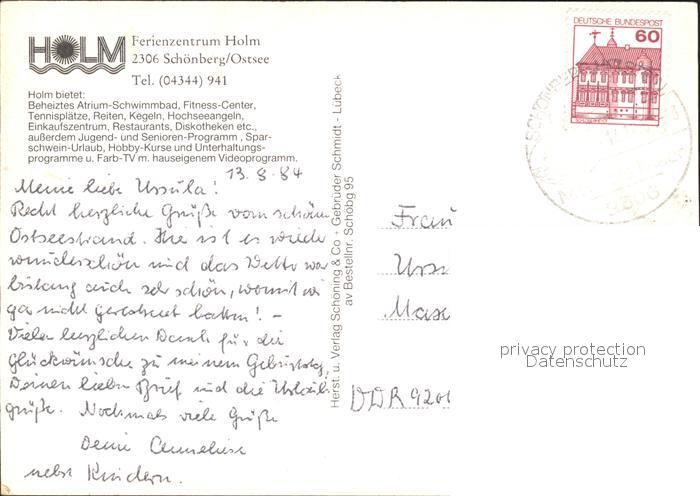 HOLM
Ferienzentrum Holm
2306 Schönberg/Ostsee
Tel. (04344) 941
Holm bietet:
Beheiztes Atrium-Schwimmbad, Fitness-Center,
Tennisplätze, Reiten, Kegeln, Hochseeangeln,
Einkaufszentrum, Restaurants, Diskotheken etc.,
außerdem Jugend- und Senioren-Programm, Spar-
schwein-Urlaub, Hobby-Kurse und Unterhaltungs-
programme u. Farb-TV m. hauseigenem Videoprogramm.
13.8.84
Meine liebe Ursula!
Recht herzliche Grüße vom schönen
Ostseestrand. Hier ist es wieder
wunderschön und das Wetter war
bislang auch sehr schön, womit wir
gar nicht gerechnet hatten! –
Vielen herzlichen Dank für die
Glückwünsche zu meinem Geburtstag,
Deinen lieben Brief und die Urlaubs-
grüße. Nochmals viele Grüße
Deine Anneliese
nebst Kindern.
Herst. u. Verlag Schöning & Co · Gebrüder Schmidt - Lübeck
av Bestellnr. Schöbg 95
DEUTSCHE BUNDESPOST
60
Frau
Urs
Mas
DDR 920
privacy protection
Datenschutz